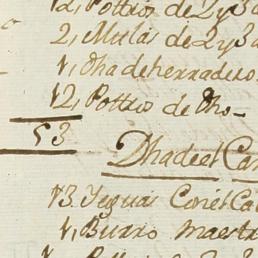 12, Potros de 2 y 3 a
2, Mulas de 2 y 3 a
1, Dha de herradero
12, Potro de Dho
53
Dha de el Ca
13. Yeguas Con el Ca
1, Burro maestr